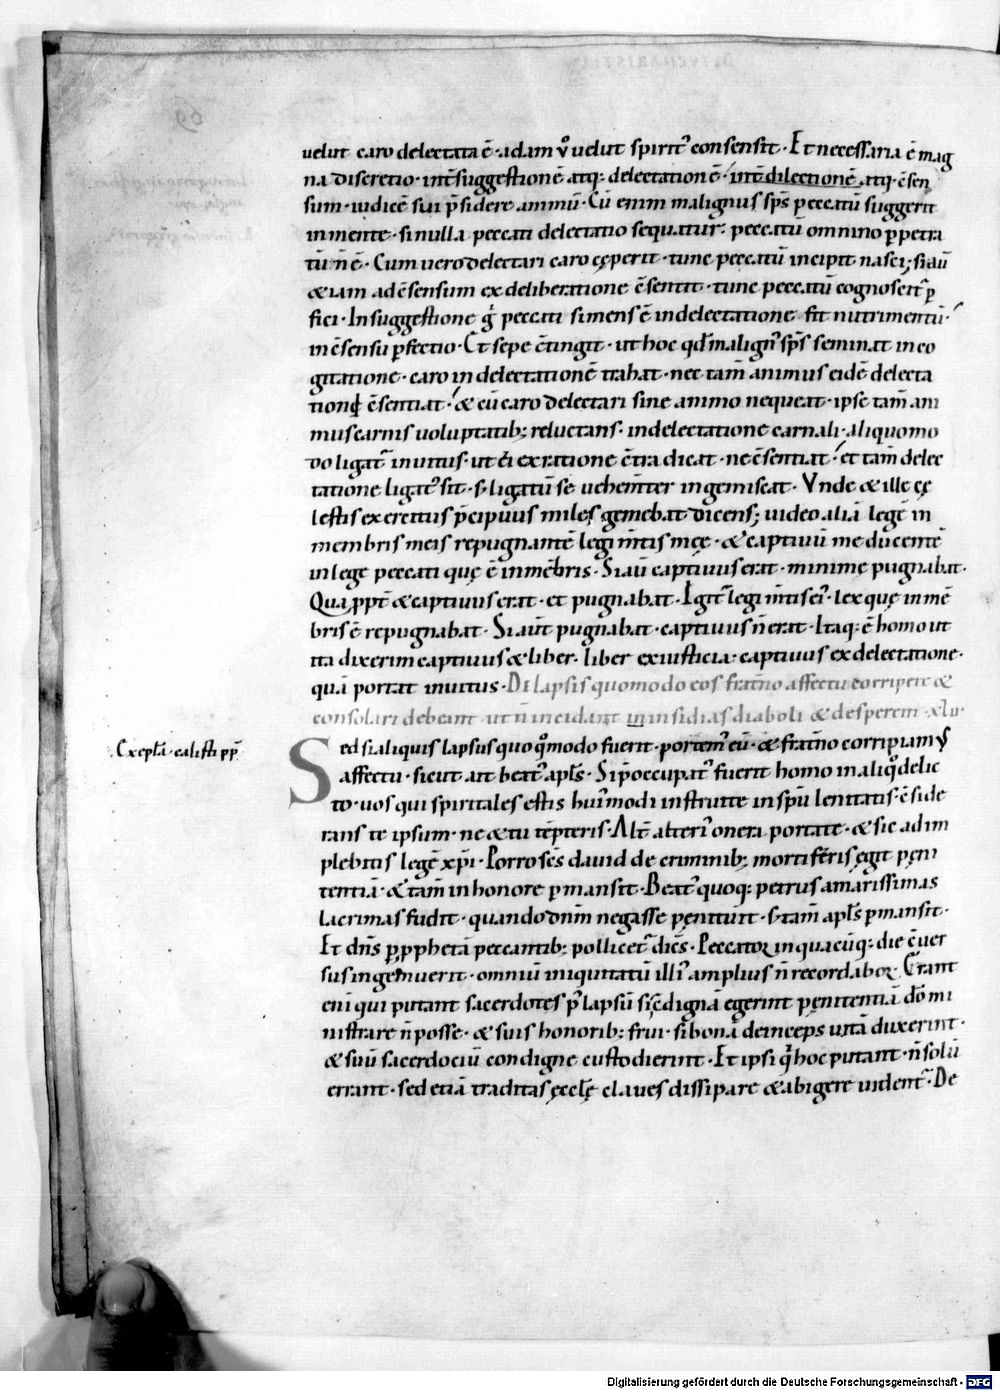 uelut caro delectata ē· adam ỽ uelut spiritꝰ consensit· Et necessaria ē mag
na discretio· int̄ suggestionē atq; delectationē· int̄ dilectionē atq· c̄sen
sum· iudicē sui p̄sidere animū· Cū enim malignus sp̄s peccatū suggerit
in mente· si nulla peccati delectatio sequatur; peccatū omnino ꝑpetra
tū n̄ ē· Cum uero delectari caro cęperit· tunc peccatū incipit nasci; si aū
& iam ad c̄sensum ex deliberatione c̄sentit· tunc peccatū cognoscit᷑ ꝑ
fici· In suggestione g̊ peccati simen s̄ ē in delectatione fit nutrimentū·
in c̄sensu ꝑfectio· Et sepe c̄tingit· ut hoc qđ malignꝰ sp̄s seminat in co
gitatione· caro in delectationē trahat· nec tam̄ animus eidē delecta
tioni c̄sentiat· & cū caro delectari sine animo nequeat· ipse tam̄ ani
mus carnis uoluptatib; reluctans· in delectatione carnali· aliquomo
do ligat᷑ inuitus· ut ei ex ratione c̄tradicat· ne c̄sentiat· et tam̄ delec
tatione ligatꝰ sit· s; ligatū se uehem̄ter ingemiscat· Vnde & ille cę
lestis exercitus p̄cipuus miles gemebat dicens; uideo aliā legē in
membris meis repugnantē legi m̄tis meę· & captiuū me ducentē
in lege peccati quę ē in mēbris· Si aū captiuus erat· minime pugnabat·
Qua ꝓpt̄ & captiuus erat· et pugnabat· Igit᷑ legi m̄tis ei᷒· lex quę in mē
bris ē repugnabat· Si aut̄ pugnabat· captiuus n̄ erat· Itaq; ē homo ut
ita dixerim captiuus & liber· liber ex iusticia· captiuus ex delectatione·
quā portat inuitus· De lapsis quomodo eos frat̄no affectu corripere &
consolari debeant ut n̄ incidant in insidias diaboli & desperem xlii·
Cx epl̄a· calisti pp̄
Sed si aliquis lapsus quoq̊modo fuerit· portem᷒ eū· & frat̄no corripiam᷒
affectu· sicut ait beatꝰ apl̄s· Si p̄occupatꝰ fuerit homo in aliq̊ delic
to· uos qui spiritales estis hui᷒modi instruite in sp̄u lenitatis· c̄side
rans te ipsum· ne & tu tēpteris· Alt̄ alteriꝰ onera portate· & sic adim
plebitis legē xp̄i· Porro s̄c̄s dauid de criminib; mortiferis egit pęni
tentiā· & tam̄ in honore ꝑmansit· Beatꝰ quoq; petrus amarissimas
lacrimas fudit· quando dn̄m negasse pęnituit· s; tam̄ apl̄s ꝑmansit·
Et dn̄s ꝑ ꝓphetā peccantib; pollicet᷑ dicēs· Peccator in quacūq; die c̄uer
sus ingemuerit· omniū iniquitatū illiꝰ amplius n̄ recordabor· Crant
eni qui putant sacerdotes pꝰ lapsū si c̄dignā egerint penitentiā dn̄o mi
nistrare n̄ posse· & suis honorib; frui· si bonā deinceps uitā duxerint·
& suū sacerdociū condigne custodierint· Et ipsi q̇ hoc putant· n̄ solū
errant· sed etiā traditas ęccl̄ę claues dissipare & abigere uident᷑· De
Digitalisierung gefördert durch die Deutsche Forschungsgemeinschaft - DFG